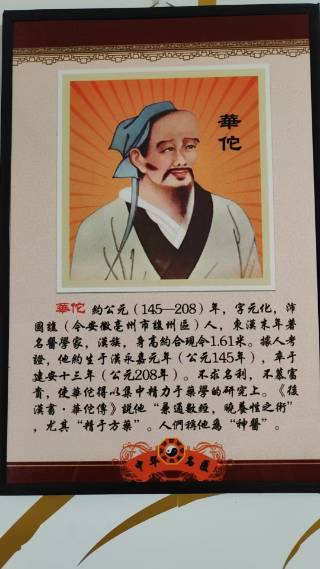 華佗
華佗 約公元（145—208）年，字元化，沛
國譙（今安徽亳州市譙州區）人，東漢末年著
名醫學家，漢族，身高約合現今1.61米。據人考
證，他約生于漢永嘉元年（公元145年），卒于
建安十三年（公元208年）。不求名利，不慕富
貴，使華佗得以集中精力于藥學的研究上。《後
漢書·華佗傳》説他“兼通數經，曉養性之術”
，尤其“精于方藥”。人們稱他爲“神醫”。
中华名医